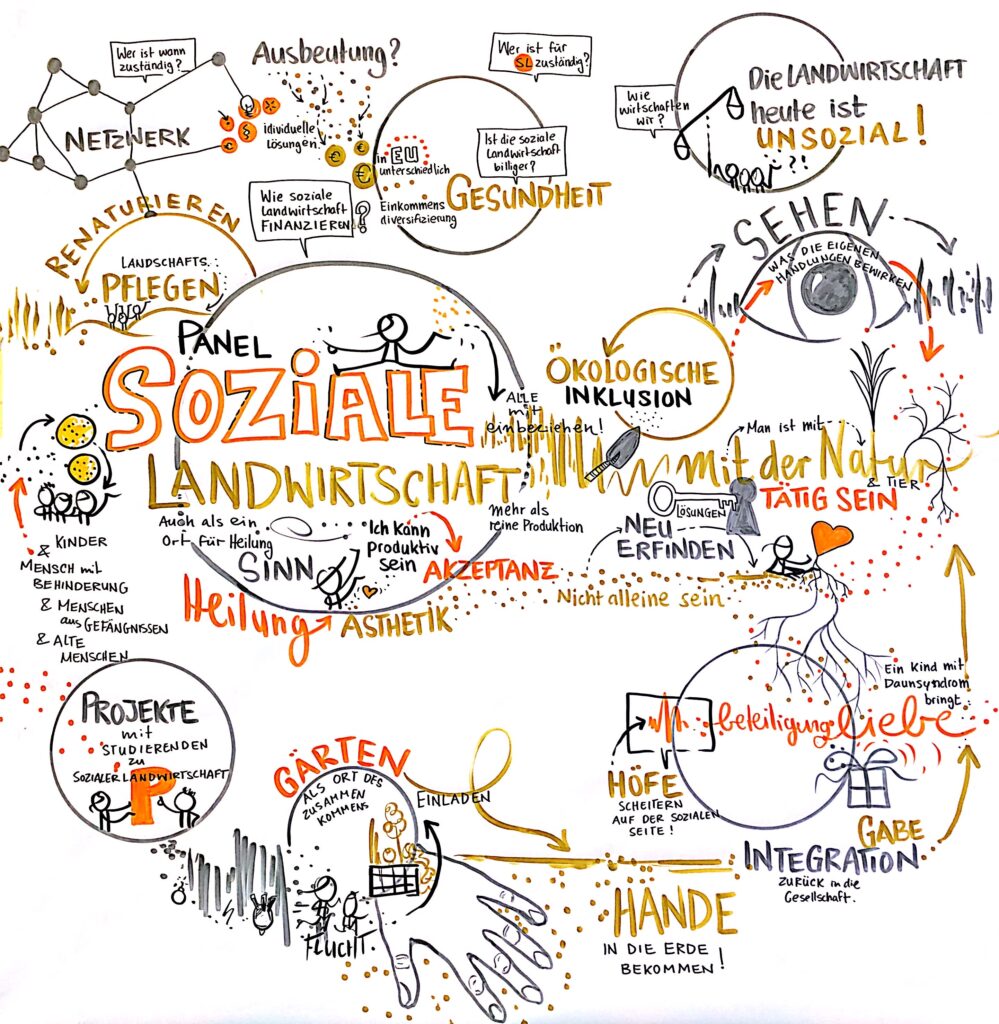 Wer ist wann
zuständig?
NETZWERK
Ausbeutung?
idividuelle
Lösungen.
Wer ist für
SL zuständig?
in EU
unterschiedlich
Ist die soziale
Landwirtschaft
billiger?
GESUNDHEIT
Einkommens
diversifizierung
Wie soziale
Landwirtschaft
FINANZIEREN?
Wie
wirtschaften
wir?
Die LANDWIRTSCHAFT
heute ist
UNSOZIAL!
?!
RENATURIEREN
LANDSCHAFTS.
PFLEGEN
SEHEN
WAS DIE EIGENEN
HANDLUNGEN BEWIRKEN
PANEL
SOZIALE
LANDWIRTSCHAFT
ALLE
mit
einbeziehen!
ÖKOLOGISCHE
INKLUSION
Man ist mit
mit der Natur
& TIER
TÄTIG SEIN
LÖSUNGEN
NEU
ERFINDEN
Nicht alleine sein
Auch als ein
Ort für Heilung
SINN
Ich kann
produktiv
sein
AKZEPTANZ
mehr als
reine Produktion
Heilung
ÄSTHETIK
& KINDER
MENSCH mit
BEHINDERUNG
& MENSCHEN
aus GEFÄNGNISSEN
& ALTE
MENSCHEN
PROJEKTE
mit
STUDIERENDEN
zu
SOZIALER LANDWIRTSCHAFT
P
GÄRTEN
ALS ORT DES
ZUSAMMEN
KOMMENS
EINLADEN
FLUCHT
HÄNDE
IN DIE ERDE
BEKOMMEN!
Ein Kind mit
Daunsyndrom
bringt
beteiligung liebe
HÖFE
SCHEITERN
AUF DER SOZIALEN
SEITE!
GABE
INTEGRATION
ZURÜCK in die
Gesellschaft.